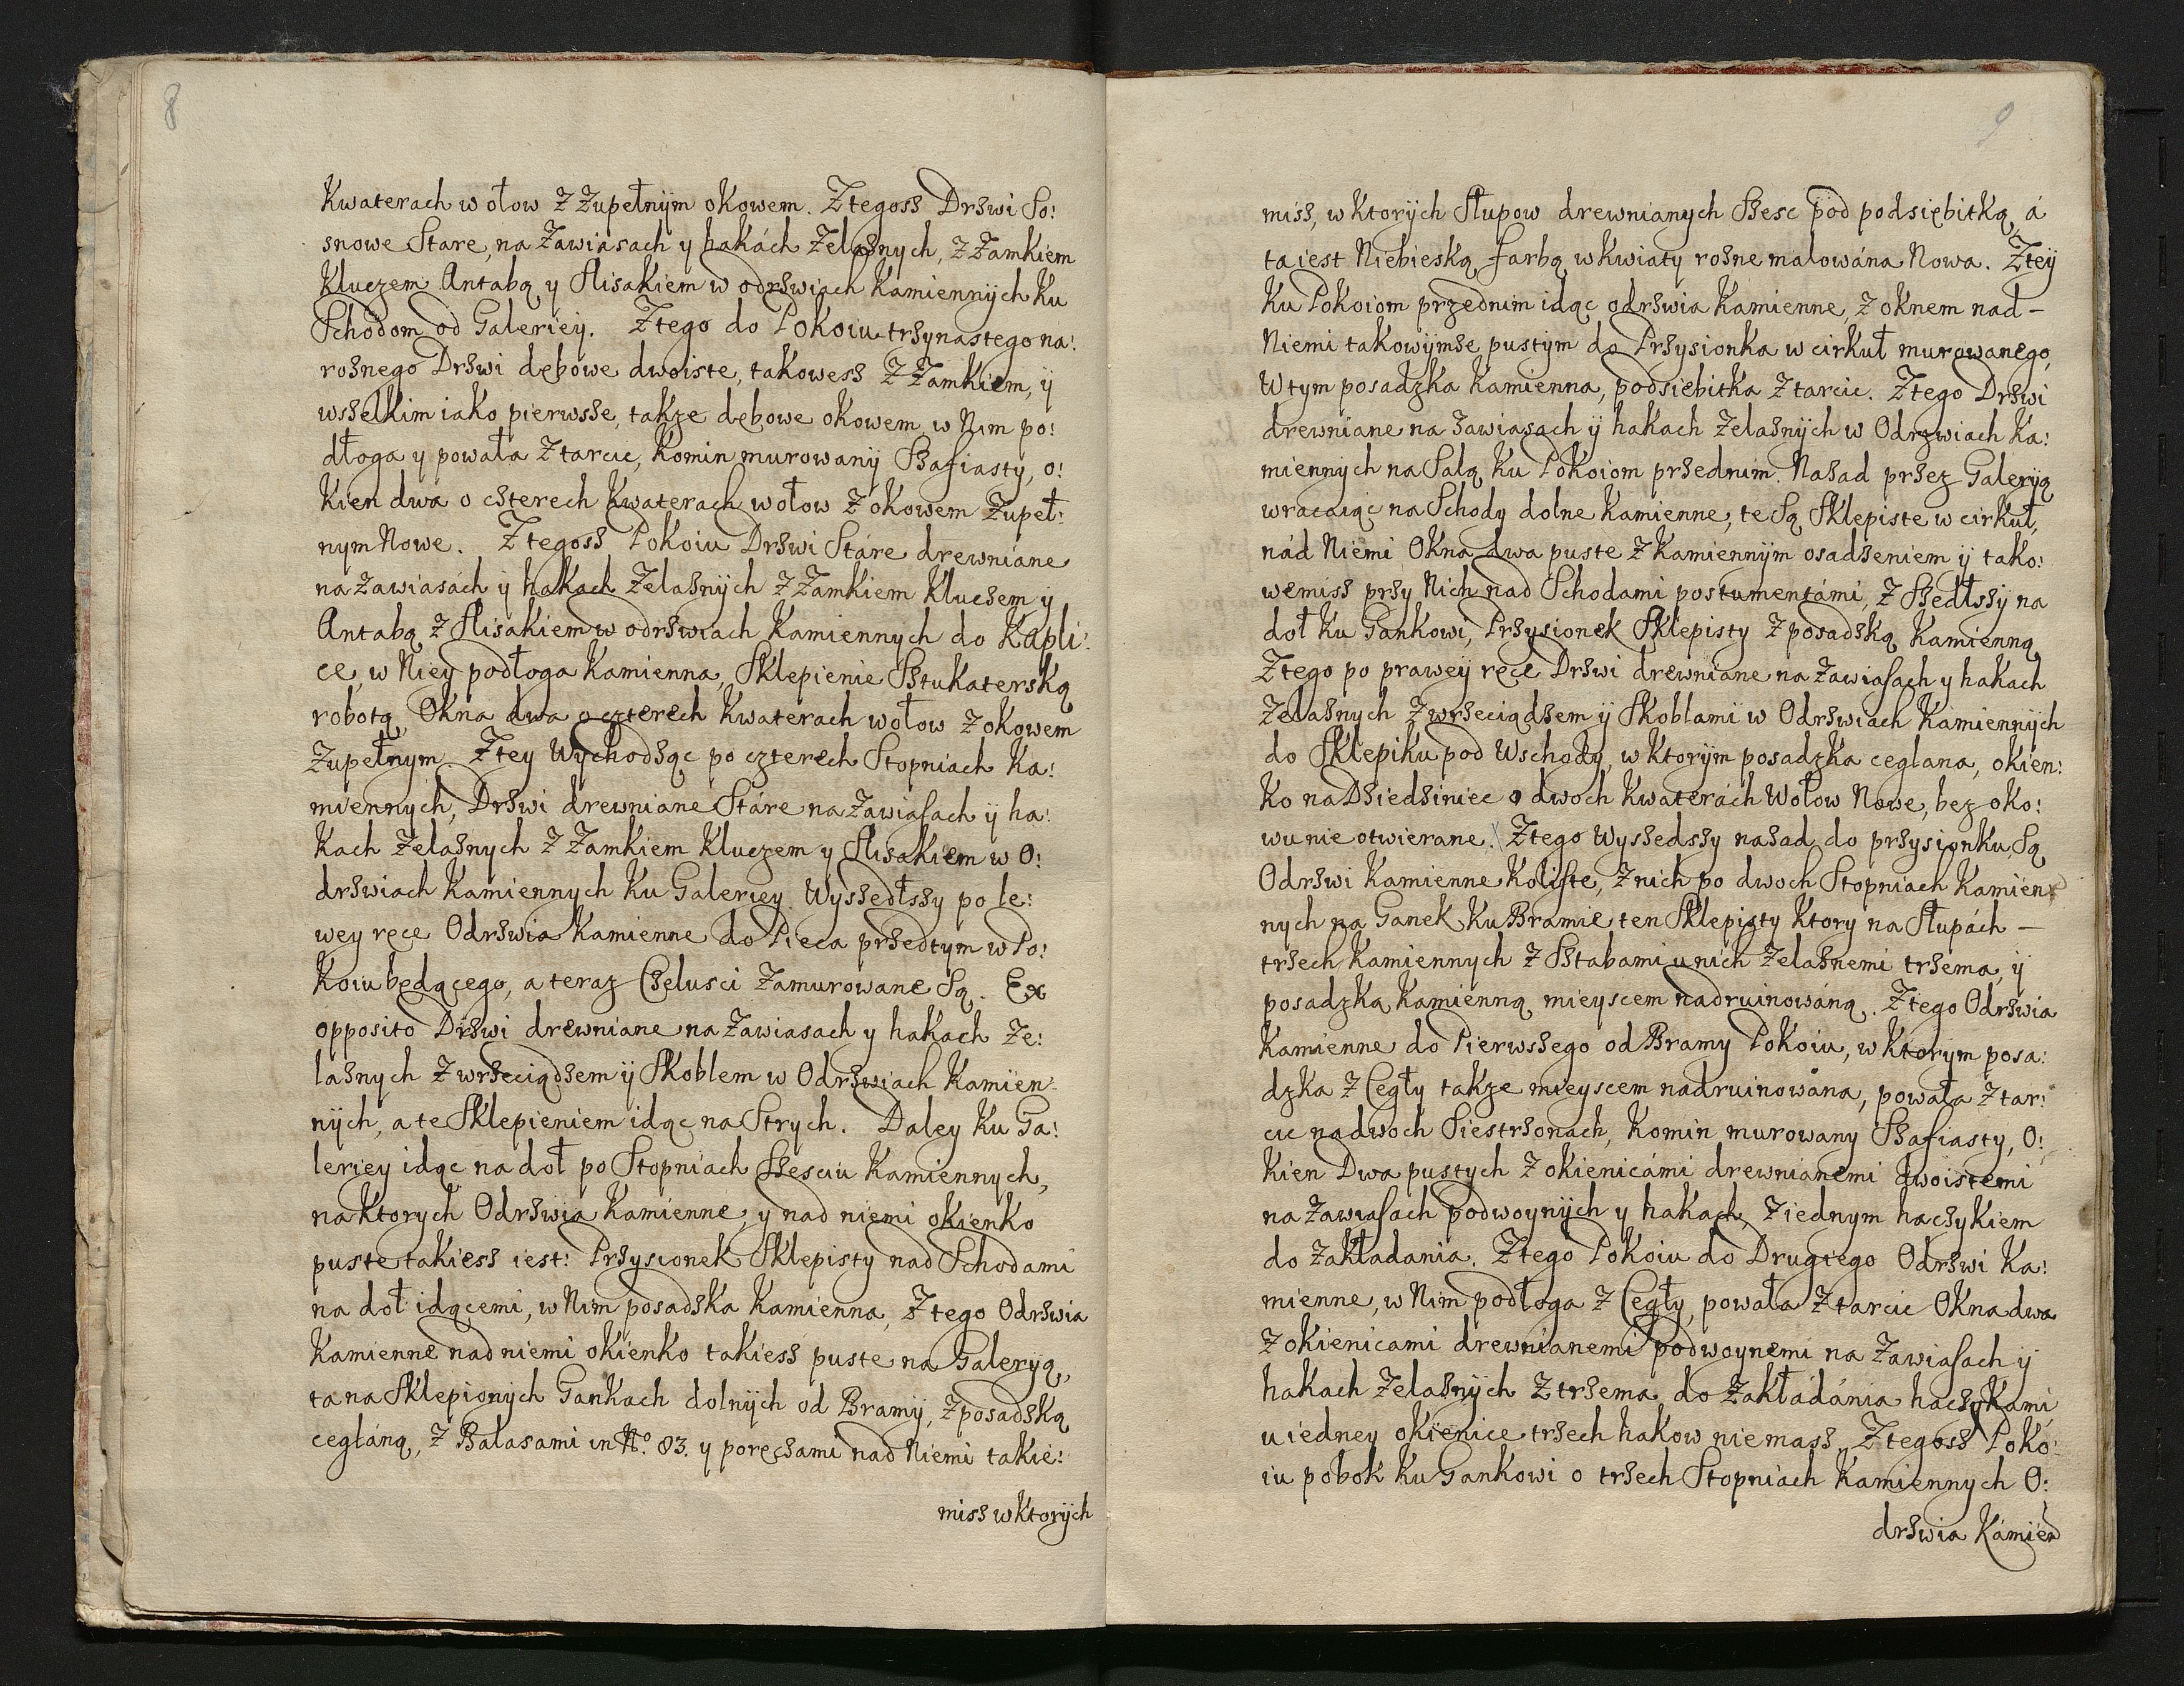 8
Kwaterach w ołow z Zupełnÿm okowem. Z tegosz Drzwi So:
snowe Stare, na Zawiasach y hakách Żelaznych, z Zamkiem
Kluczem Antabą y Klisakiem w odrzwiach Kamiennÿch Ku
Schodom od Galerieÿ. Z tego do Pokoiu trzynastego na:
roznego Drzwi dębowe dwoiste, takowesz z Zamkiem, ÿ
wszelkim iako pierwsze, takze dębowe okowem, w Nim po:
dłoga y powała z tarcic, Komin murowanÿ Szafiasty, O:
kien dwa o czterech Kwaterach w ołow z okowem Zupeł:
nym Nowe. Z tegosz Pokoiu Drzwi Stáre drewniane
na Zawiasách ÿ hakach Żelaznÿch z Zamkiem Kluczem y
Antabą z Klisakiem w odrzwiach Kamiennych do Kapli:
ce, w Niey podłoga Kamienna, Sklepienie Sztukaterską
robotą, Okna dwa o czterech Kwaterach w ołow z okowem
Zupełnym. Z tey Wychodząc po czterech Stopniach Ka:
miennych, Drzwi drewniane Stáre na Zawiasach ÿ ha:
kach Żelaznych z Zamkiem Kluczem y Klisakiem w O:
drzwiach Kamiennych Ku Galeriey. Wyszedłszy po le:
wey ręce Odrzwia Kamienne do Pieca przedtym w Po:
Koiu będącego, a teraz Czelusci Zamurowane Są. Ex
opposito Drzwi drewniane na Zawiasach y hakach Że:
laznych z wrzeciądzem ÿ Skoblem w Odrzwiach Kamien-
nÿch, a te Sklepieniem idąc na Strych. Daley Ku Ga:
leriey idąc na doł po Stopniach Szesciu Kamiennych,
na ktorych Odrzwia Kamienne, y nad niemi okienko
puste takiesz iest: Przysionek Sklepisty nad Schodami
na doł idącemi, w Nim posadzka Kamienna, Z tego Odrzwia
Kamienne nad niemi okienko takiesz puste na Galerÿą,
ta na Sklepionÿch Gankach dolnÿch od Bramÿ, z posadzką
cegláną, z Bałasami in No. 83. y poręczami nad Niemi takie:
misz w Ktorÿch
9
misz, w Ktorÿch Słupow drewnianych Szesc pod podsiębitką, á
ta iest Niebieską farbą w kwiaty rozne malowána Nowa. Z teÿ
Ku Pokoiom przednim idąc odrzwia Kamienne, z oknem nad -
Niemi takowÿmze pustÿm do Przysionka w cirkuł murowanego,
W tym posadzka Kamienna, podsiębitka z tarcic. Z tego Drzwi
drewniane na Zawiasach ÿ hakach Żelaznÿch w Odrzwiach Ka:
miennych na Salą Ku Pokoiom przednim. Nazad przez Galerÿą
wracaiąc na Schody dolne Kamienne, te Są Sklepiste w cirkuł,
nád Niemi Okna dwa puste z Kamiennÿm osadzeniem ÿ tako:
wemisz przy Nich nad Schodami postumentámi, Z Szedłszÿ na
doł Ku Gankowi, Przysionek Sklepisty z posadzką Kamienną
Z tego po praweÿ ręce Drzwi drewniane na Zawiasach y hakach
Żelaznych z wrzeciądzem ÿ Skoblami w Odrzwiach Kamiennÿch
do Sklepiku pod Wschody, w Ktorÿm posadzka ceglana, okien:
ko na Dziedziniec o dwoch Kwaterách W ołow Nowe, bez oko:
wu nie otwierane. Z tego Wyszedszy nazad do przysionku, Są
Odrzwi Kamienne Koliste, z nich po dwoch Stopniach Kamien
nych na Ganek Ku Bramie ten Sklepisty Ktory na Słupách -
trzech Kamiennych z Sztabami u nich Żelaznemi trzema, ÿ
posadzką Kamienną mieyscem nadruinowáną. Z tego Odrzwia
Kamienne do Pierwszego od Bramy Pokoiu, w Ktorym posa:
dzka z Cegły takze mieyscem nadruinowána, powała z tar:
cic na dwoch Siestrzonach, Komin murowany Szafiasty, O:
kien Dwa pustych z okienicámi drewnianemi dwoistemi
na Zawiasach podwoynÿch y hakach, z iednym haczykiem
do Zakładania. Z tego Pokoiu do Drugiego Odrzwi Ka:
mienne, w Nim podłoga z Cegły, powała z tarcic Okna dwa
z okienicami drewnianemi podwoynemi na Zawiasach ÿ
hakach Żelaznÿch z trzema do Zakłádánia haczykami
u iedney okienice trzech hakow niemasz. Z tegosz Poko:
iu pobok Ku Gankowi o trzech Stopniach Kamiennych O:
drzwia Kámien